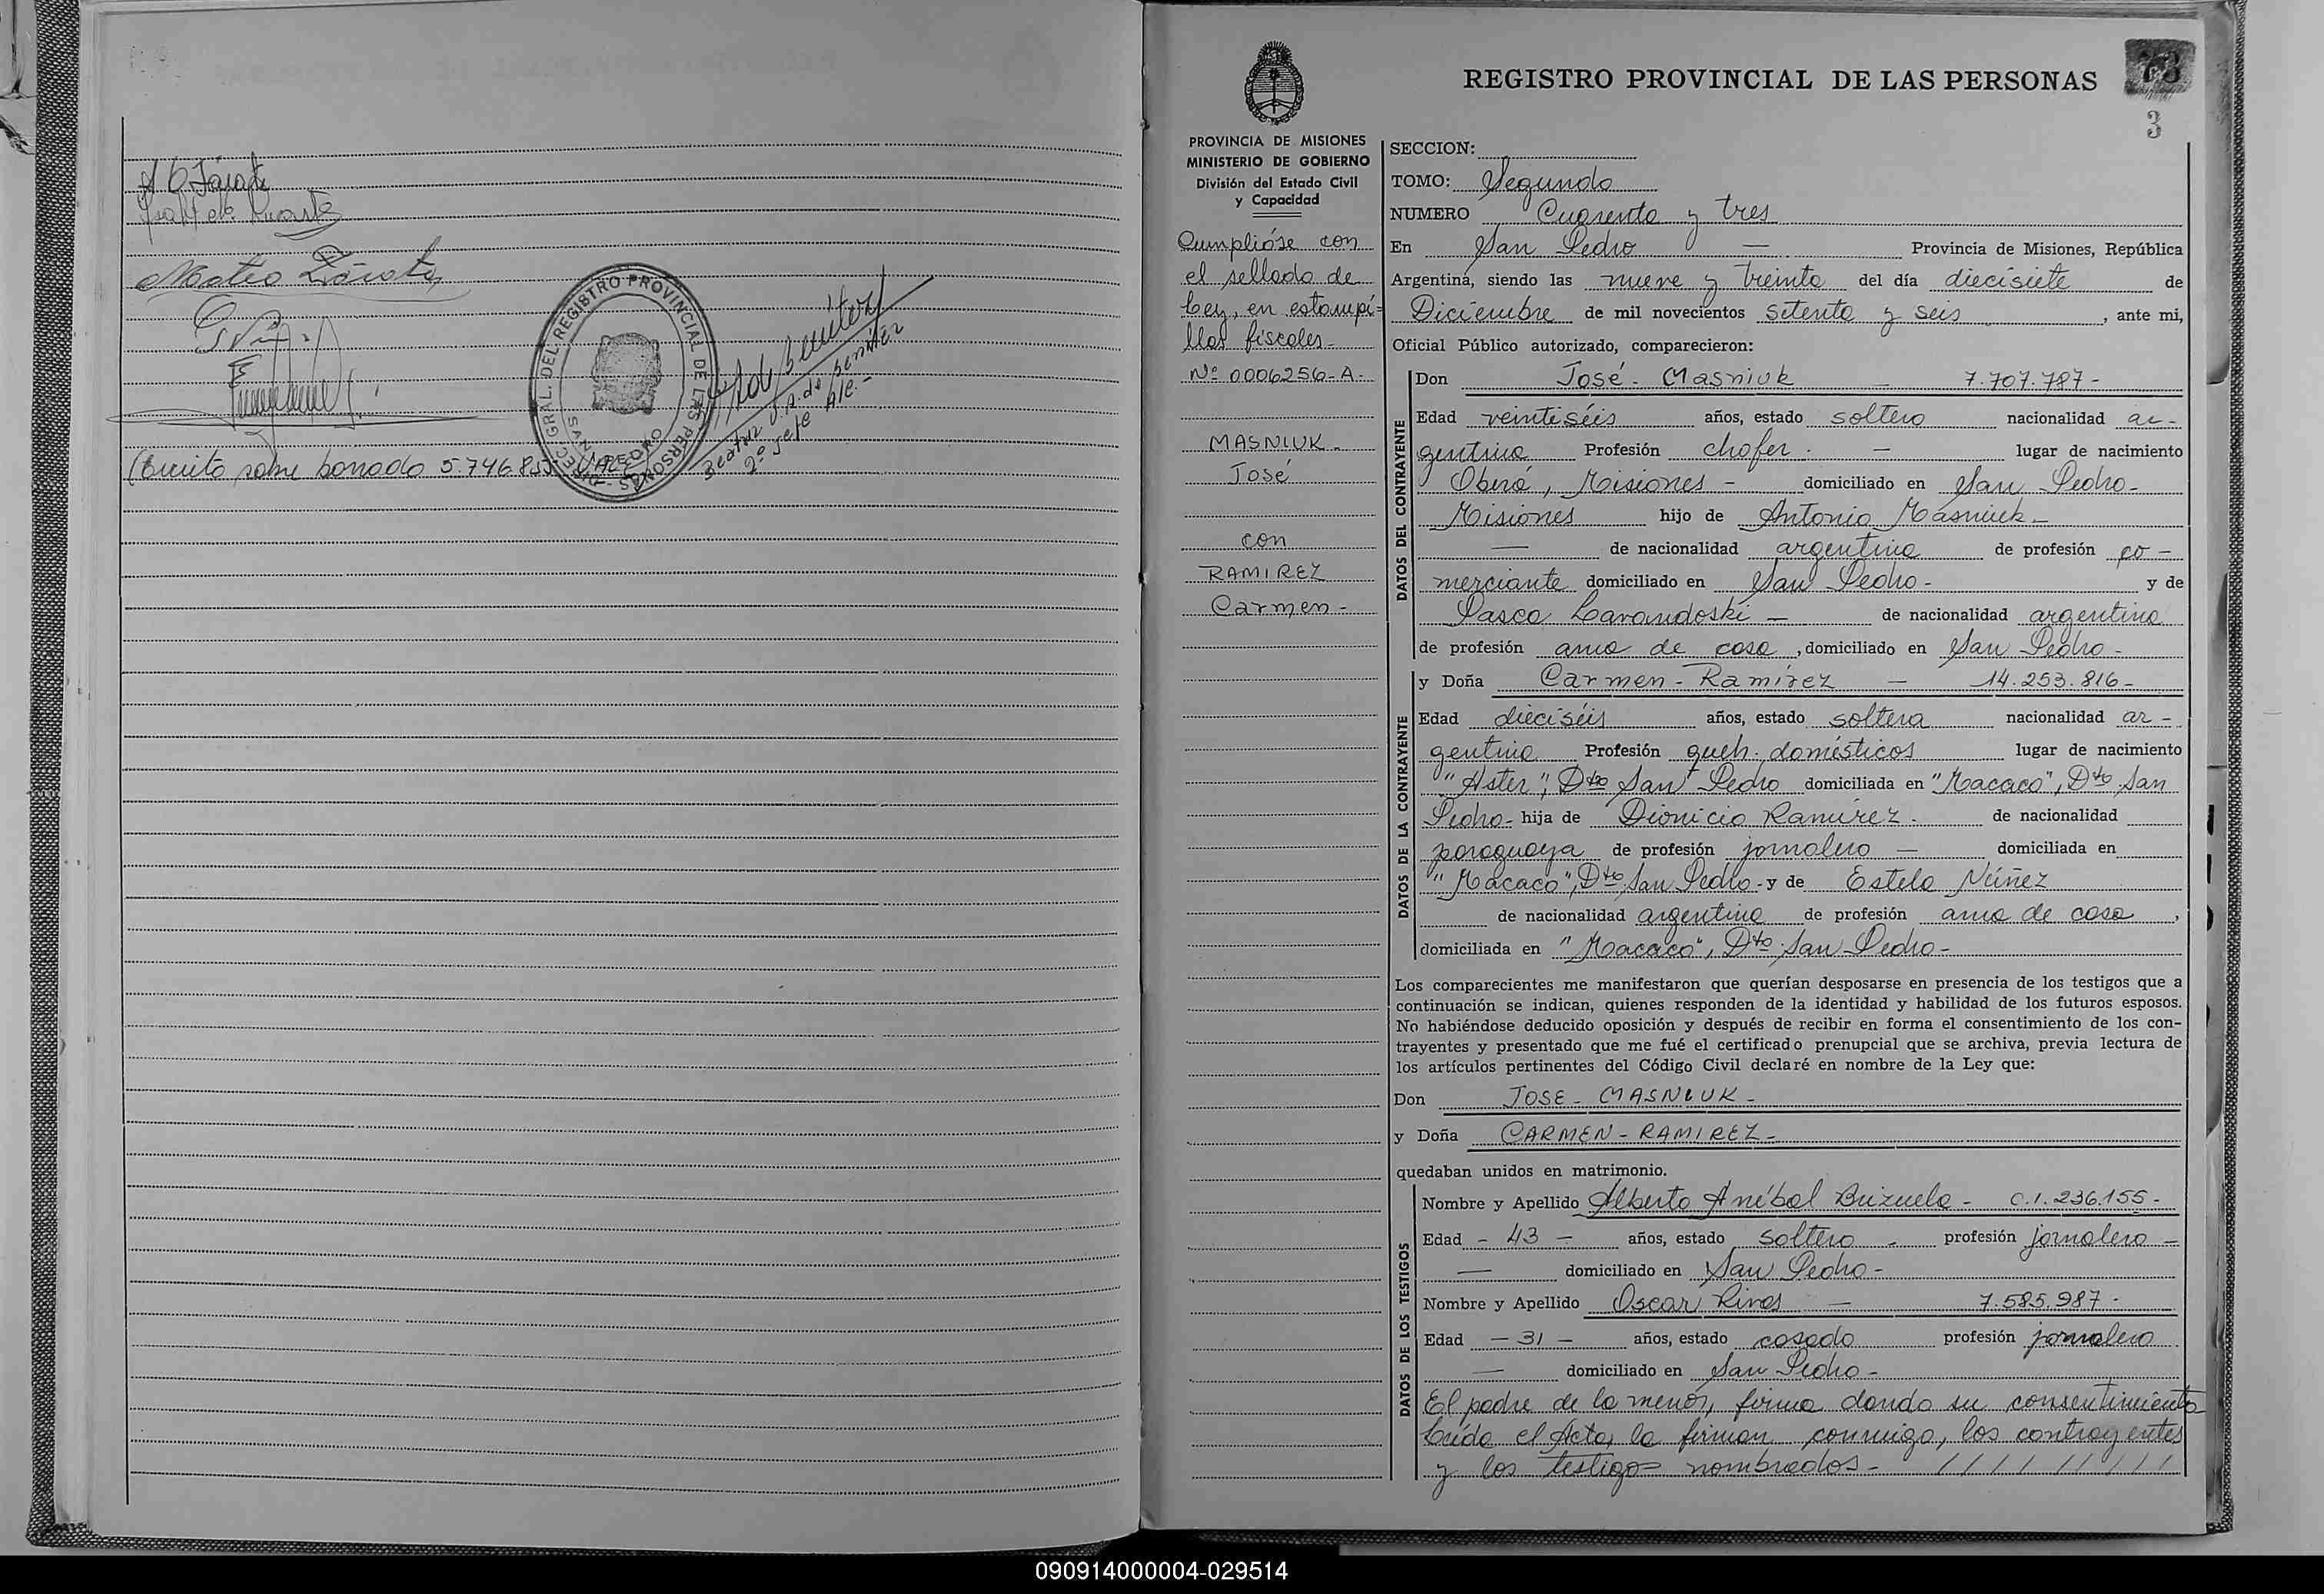 Mateo Zárate
(Escrito sobre borrado 5.746.8
DIREC. GRAL. DEL REGISTRO PROVINCIAL DE LAS PERSONAS
SAN PEDRO
2º Jefe
REGISTRO PROVINCIAL DE LAS PERSONAS
73
3
PROVINCIA DE MISIONES
MINISTERIO DE GOBIERNO
División del Estado Civil
y Capacidad
Cumplióse con
el sellado de
Ley, en estampi=
llas fiscales-
Nº 0006256-A-
MASNIUK-
José
con
RAMIREZ
Carmen-
SECCION:
TOMO: Segundo
NUMERO Cuarenta y tres
En San Pedro — Provincia de Misiones, República
Argentina, siendo las nueve y treinta del día diecisiete de
Diciembre de mil novecientos setenta y seis, ante mi,
Oficial Público autorizado, comparecieron:
DATOS DEL CONTRAYENTE
Don José - Masniuk — 7.707.787-
Edad veintiséis años, estado soltero nacionalidad ar-
gentina Profesión chofer. — lugar de nacimiento
Oberá, Misiones - domiciliado en San Pedro-
Misiones hijo de Antonio Masniuk-
— de nacionalidad argentina de profesión co-
merciante domiciliado en San Pedro- y de
Pasca Lavandoski — de nacionalidad argentina
de profesión ama de casa, domiciliado en San Pedro-
y Doña Carmen - Ramírez — 14.253.816-
DATOS DE LA CONTRAYENTE
Edad dieciséis años, estado soltera nacionalidad ar-
gentina Profesión queh. domésticos lugar de nacimiento
"Aster", Dto San Pedro domiciliada en "Macaco", Dto San
Pedro- hija de Dionicio Ramírez- de nacionalidad
paraguaya de profesión jornalero — domiciliada en
"Macaco", Dto San Pedro- y de Estela Núñez
de nacionalidad argentina de profesión ama de casa,
domiciliada en "Macaco", Dto San Pedro-
Los comparecientes me manifestaron que querían desposarse en presencia de los testigos que a
continuación se indican, quienes responden de la identidad y habilidad de los futuros esposos.
No habiéndose deducido oposición y después de recibir en forma el consentimiento de los con-
trayentes y presentado que me fué el certificado prenupcial que se archiva, previa lectura de
los artículos pertinentes del Código Civil declaré en nombre de la Ley que:
Don JOSE - MASNIUK-
y Doña CARMEN - RAMIREZ-
quedaban unidos en matrimonio.
DATOS DE LOS TESTIGOS
Nombre y Apellido Alberto Aníbal Brizuela- C.I. 236.155-
Edad - 43 - años, estado soltero - profesión jornalero-
— domiciliado en San Pedro-
Nombre y Apellido Oscar Rivas — 7.585.987-
Edad - 31 - años, estado casado profesión jornalero
— domiciliado en San Pedro-
El padre de la menor, firma dando su consentimiento
Leída el Acta, la firman conmigo, los contrayentes
y los testigos nombrados- / / / / / / / / /
090914000004-029514